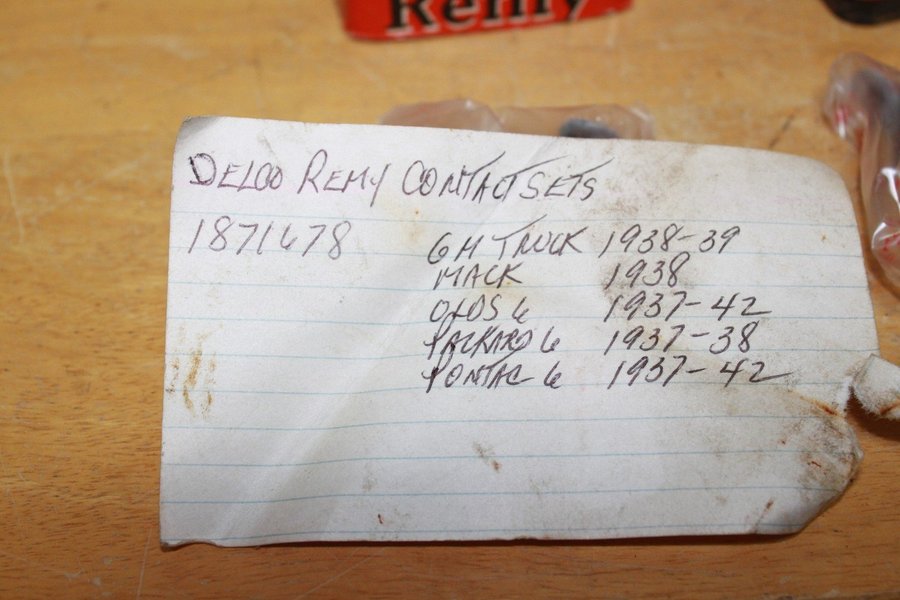 Remy
DELCO REMY CONTACT SETS
1871678
GM TRUCK 1938-39
MACK 1938
OLDS 6 1937-42
PACKARD 6 1937-38
PONTAC 6 1937-42